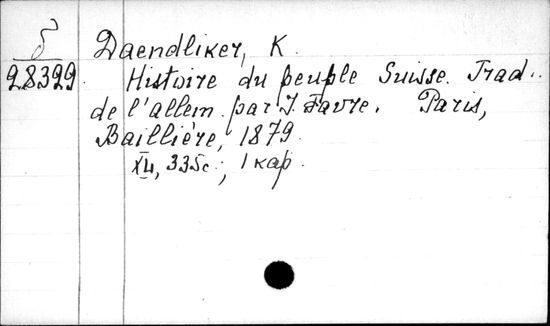 δ
28399.
Daendliker, K.
Histoire du peuple Suisse. Trad..
de l'allem. par J. Favre. Paris,
Baillière, 1879.
XII, 335c., 1 кар.